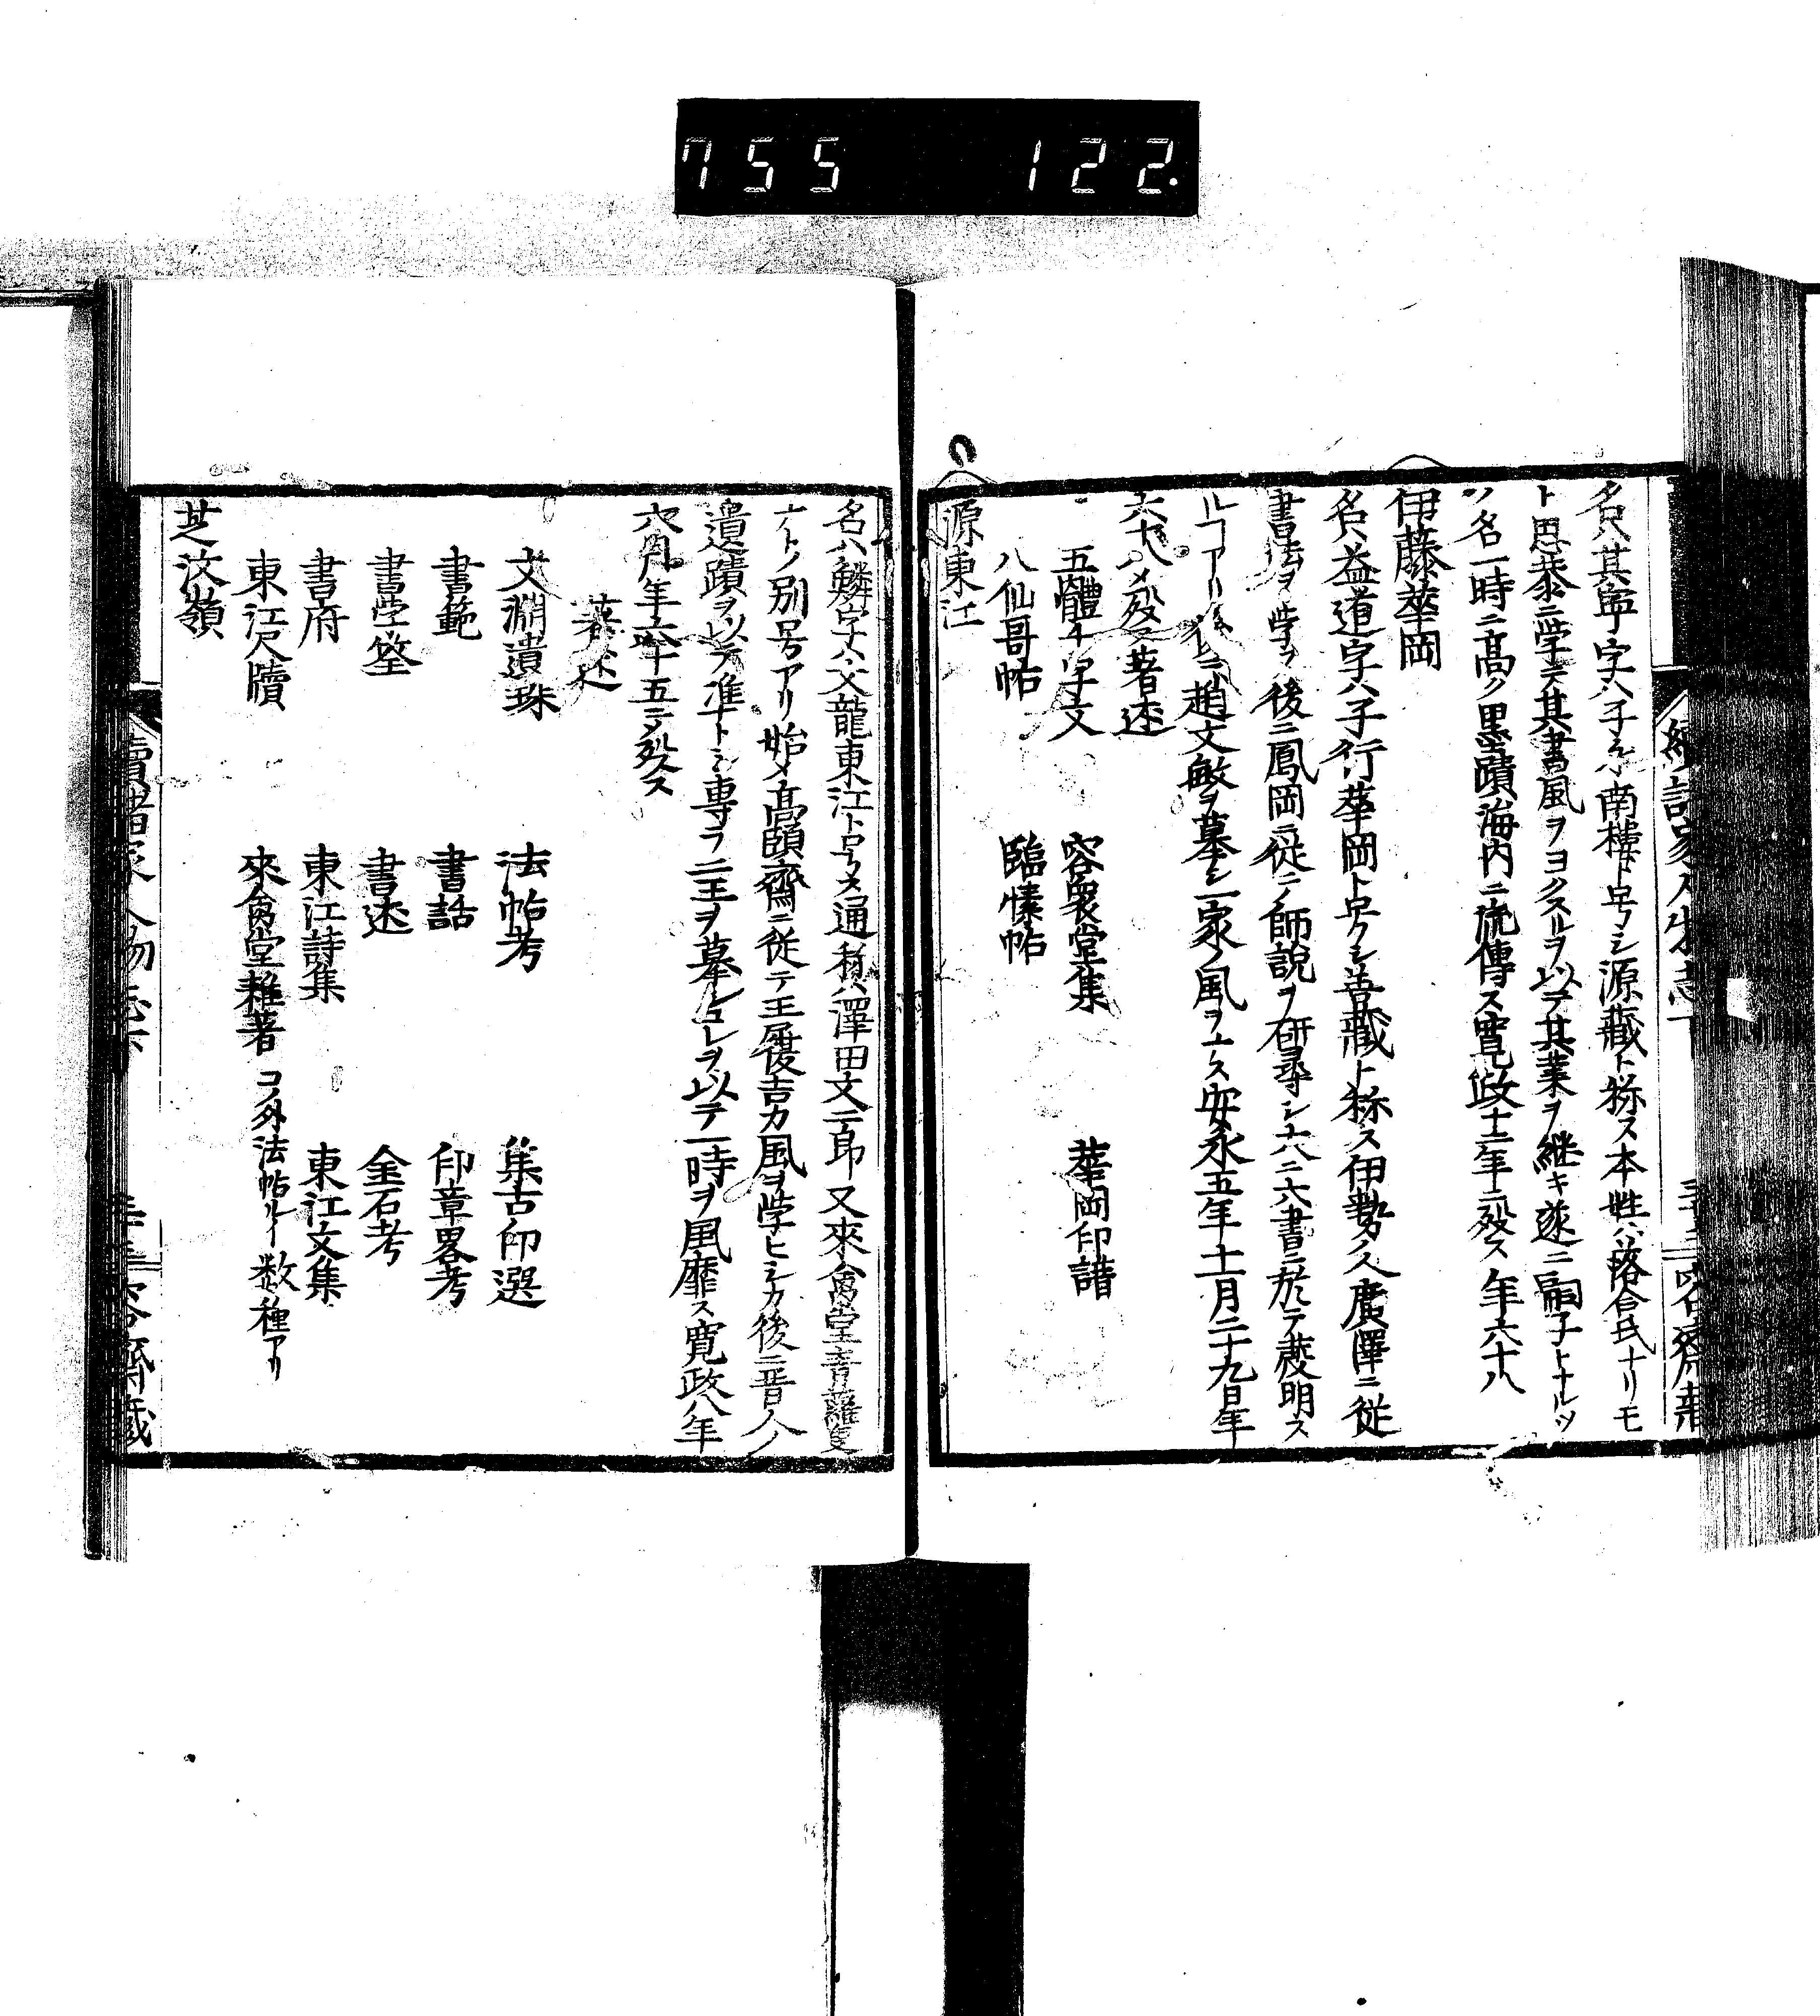 755 122.
名ハ其寧字ハ子 南樓ト号シ源藏ト称ス本姓ハ落合氏ナリモ
ト思恭ニ学テ其書風ヲヨクスルヲ以テ其業ヲ継キ遂ニ嗣子トナルソ
ノ名一時ニ高ク墨蹟海内ニ流傳ス寛政十二年ニ殁ス年六十八
伊藤華岡
名ハ益道字ハ子行華岡ト号シ善藏ト称ス伊勢ノ人廣澤ニ従
書法ヲ学ヲ後ニ鳳岡ニ従ニノ師説ヲ研尋シ六ニ六書ニ於テ發明ス
ルヿアリ 趙文敏ヲ慕シ一家ノ風ヲ ス安永五年十一月二十九日年
六十八〆殁ス著述
五體千字文 容衆堂集 華岡印譜
八仙哥帖 臨懐帖
源東江
名ハ鱗字ハ文龍東江ト号メ通称ハ澤田文二郎又來禽堂青蘿
ナトノ別号アリ始メ高頤齋ニ従テ王履吉カ風ヲ学ヒシカ後ニ晋人ノ
遺蹟ヲ以テ准トシ専ラ二王ヲ慕レコレヲ以テ一時ヲ風靡ス寛政八年
六月年六十五ニ〆殁ス
著述
文淵遺珠 法帖考 集古印選
書範 書話 印章畧考
書学筌 書述 金石考
書府 東江詩集 東江文集
東江尺牘 來禽堂雜著 コノ外法帖ルイ数種アリ
芝汶嶺